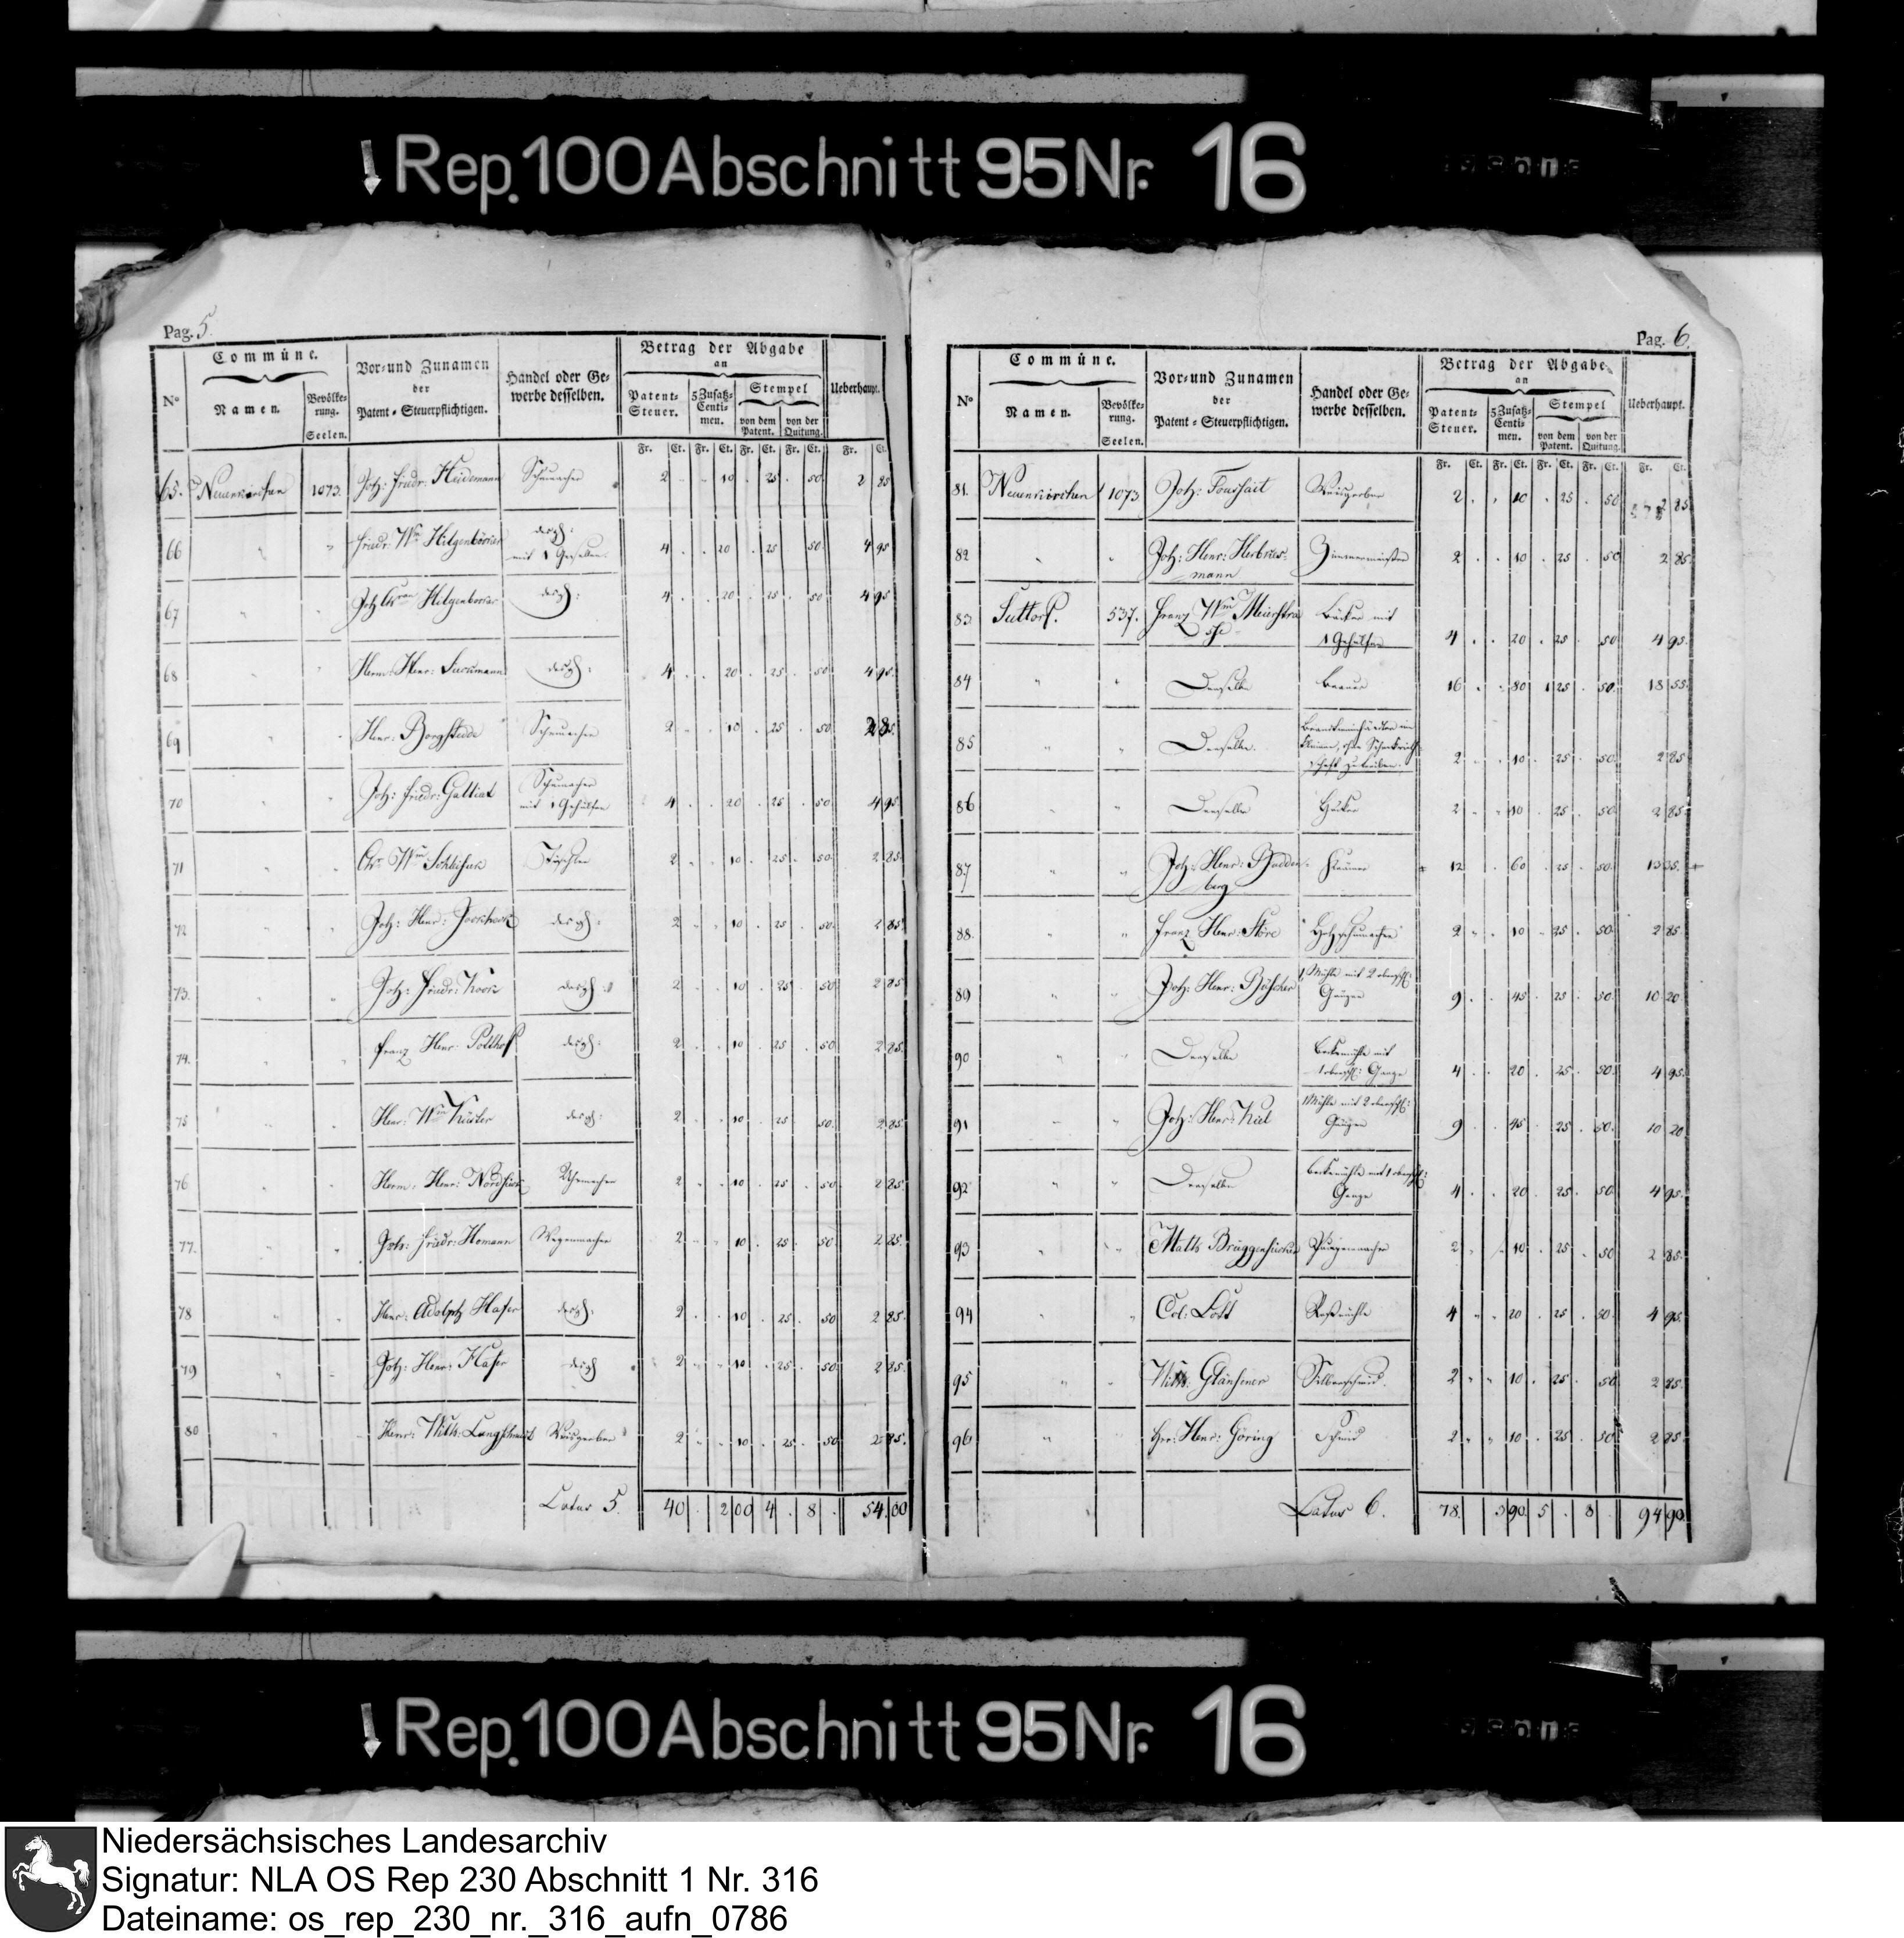 Rep. 100 Abschnitt 95 Nr. 16
Pag. 5.
N° Commüne. Namen. Bevölkerung. Seelen. Vor- und Zunamen der Patent-Steuerpflichtigen. Handel oder Gewerbe desselben. Betrag der Abgabe an Patent-Steuer. 5 Zusatz-Centimen. Stempel von dem Patent. von der Quitung. Ueberhaupt.
Fr. Ct. Fr. Ct. Fr. Ct. Fr. Ct. Fr. Ct.
65. Neuenkirchen 1073. Joh: Friedr: Hüdemann Schumacher 2 . . 10 . 25 . 50. 2 85
66 " " Friedr: Wm Hilgenböcker desgl: mit 1 Gesellen. 4 . . 20 . 25 . 50. 4 95
67 " " desgl: 4 . . 20 . 25 . 50 4 95
68 " " Herm: Henr: desgl: 4 . . 20 . 25 . 50 4 95.
69 " " Henr: Borgstedde Schumacher 2 . . 10 . 25 . 50 2 85.
70 " " Joh: Friedr: Galliat Schumacher mit 1 Gehülfen 4 . . 20 . 25 . 50. 4 95.
71 " " Tischler 2 . . 10 . 25 . 50. 2 85.
72 " " Joh: Henr: desgl: 2 . . 10 . 25 . 50. 2 85.
73. " " Joh: Friedr: Kook desgl: 2 . . 10 . 25 . 50 2 85
74. " " Franz Henr: Potthof desgl: 2 . . 10 . 25 . 50 2 85.
75 " " Henr: Wm Küster desgl: 2 . . 10 . 25 . 50. 2 85.
76 " " Herm: Henr: Uhrmacher 2 . . 10 . 25 . 50. 2 85.
77. " " Joh: Friedr: Homann Wagenmacher 2 . . 10 . 25 . 50 2 85.
78 " " Henr: Adolph Hafer desgl: 2 . . 10 . 25 . 50 2 85.
79 " " Joh: Henr: Hafer desgl 2 . . 10 . 25 . 50. 2 85.
80 " " Henr: Wilh: Langschmidt Weisgerber 2 . . 10 . 25 . 50 2 85.
Latus 5. 40 . 2 00 4 . 8 . 54. 00
Pag. 6.
N° Commüne. Namen. Bevölkerung. Seelen. Vor- und Zunamen der Patent-Steuerpflichtigen. Handel oder Gewerbe desselben. Betrag der Abgabe an Patent-Steuer. 5 Zusatz-Centimen. Stempel von dem Patent. von der Quitung. Ueberhaupt.
Fr. Ct. Fr. Ct. Fr. Ct. Fr. Ct. Fr. Ct.
81. Neuenkirchen 1073 Joh: Weisgerber 2 . . 10 . 25 . 50 2 85.
82 " " Joh: Henr: Zimmermeister 2 . . 10 . 25 . 50 2 85.
83 Suttorf. 537. Franz Wm Bäcker mit 1 Gehülfen 4 . . 20 . 25 . 50 4 95.
84 " " Derselbe Brauer 16 . . 80 1 25 . 50. 18 55.
85 " " Derselbe. 2 . . 10 . 25 . 50. 2 85
86 " " Derselbe Höker 2 . . 10 . 25 . 50. 2 85.
87 " " Joh: Henr: 12 . . 60 . 25 . 50. 13 35.
88. " " Franz Henr: Störe Holzschumacher 2 . . 10 . 25 . 50. 2 85.
89 " " Joh: Henr: Büscher 1 Mühle mit 2 oberschl: Gängen 9 . . 45 . 25 . 50. 10 20.
90 " " Derselbe Bockemühle mit 1 oberschl: Gange 4 . . 20 . 25 . 50. 4 95.
91 " " Joh: Henr: Kiel 1 Mühle mit 2 oberschl: Gängen 9 . . 45 . 25 . 50. 10 20
92 " " Derselbe Bockemühle mit 1 oberschl: Gange 4 . . 20 . 25 . 50. 4 95.
93 " " 2 . . 10 . 25 . 50 2 85.
94 " " Col: Lott Roßmühle 4 . . 20 . 25 . 50. 4 95.
95 " " Wilh: Silberschmid. 2 . . 10 . 25 . 50 2 85.
96 " " Henr: Göring Schmid 2 . . 10 . 25 . 50 2 85
Latus 6. 78. 3 90. 5 . 8 94 90.
Rep. 100 Abschnitt 95 Nr. 16
Niedersächsisches Landesarchiv
Signatur: NLA OS Rep 230 Abschnitt 1 Nr. 316
Dateiname: os_rep_230_nr._316_aufn_0786